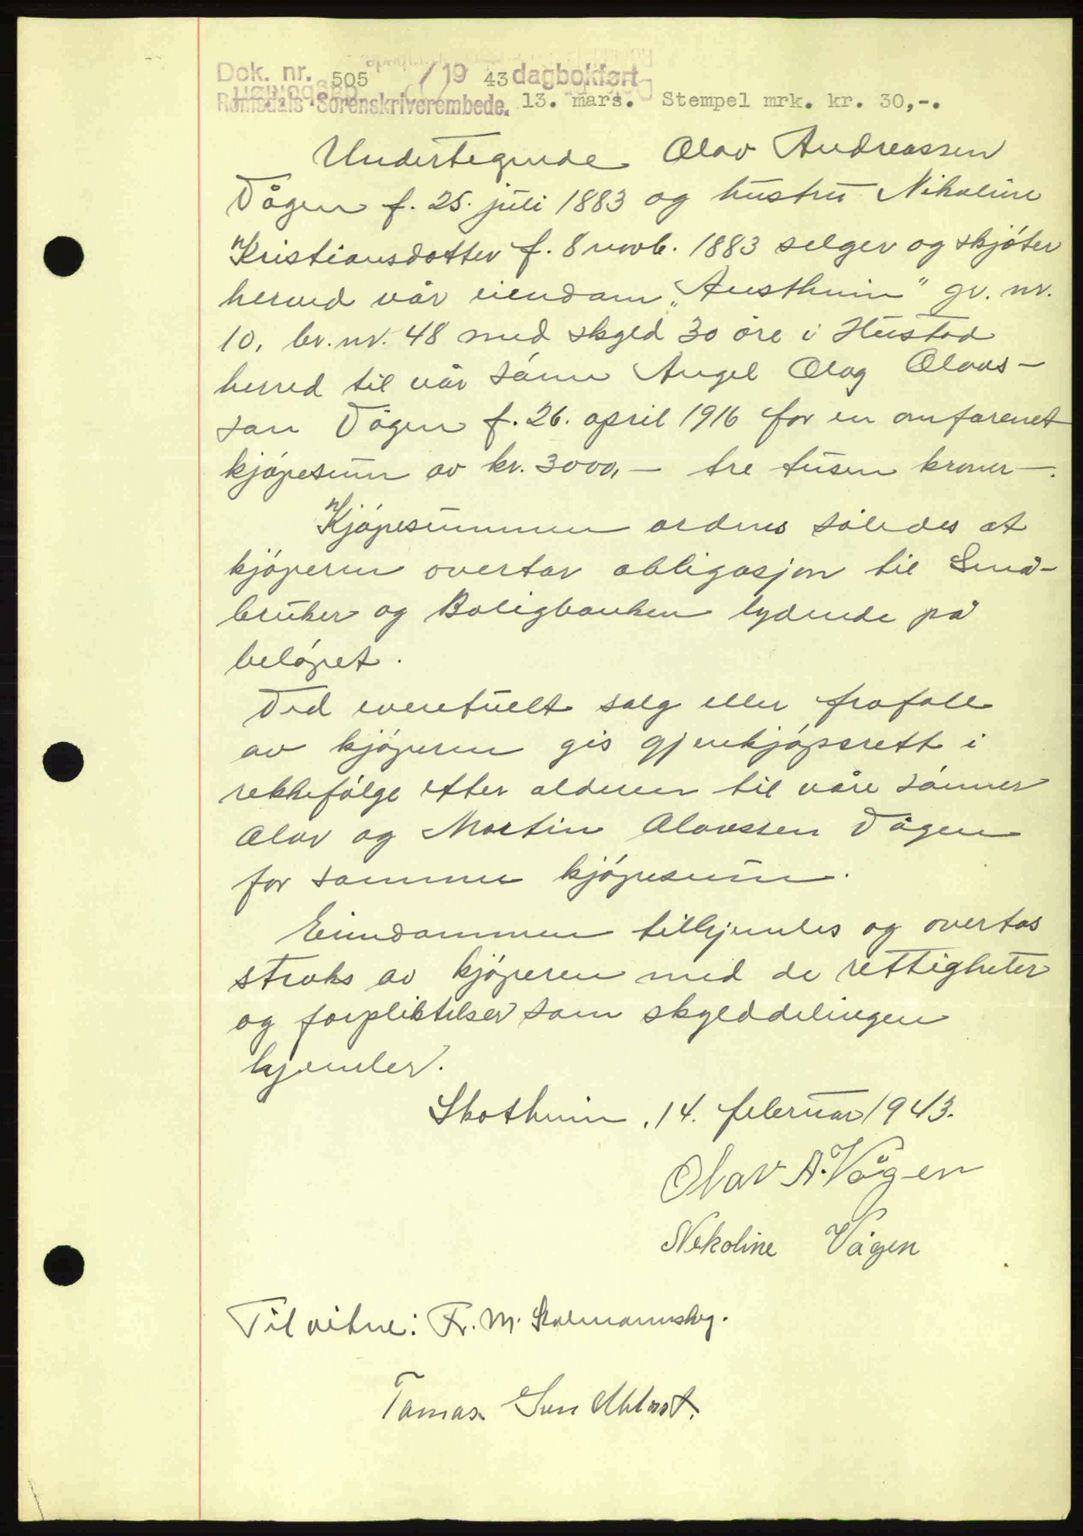 Dok. nr. 505 / 19 43 dagbokført
Romsdals Sorenskriverembede. 13. mars. Stempel mrk. kr. 30,-.
Undertegnede Olav Andreassen
Vågen f. 25. juli 1883 og hustru Nikoline
Kristiansdotter f. 8 novb. 1883 selger og skjøter
herved vår eiendom „Austheim" gr. nr.
10, br. nr. 48 med skyld 30 øre i Hustad
herred til vår sønn Angel Olag Olavs-
son Vågen f. 26. april 1916 for en omforenet
kjøpesum av kr. 3000,- tre tusen kroner-.
Kjøpesummen ordnes således at
kjøperen overtar obligasjon til Små-
bruker og Boligbanken lydende på
beløpet.
Ved eventuelt salg eller frafall
av kjøperen gis gjenkjøpsrett i
rekkefølge etter alderen til våre sønner
Olav og Martin Olavssen Vågen
for samme kjøpesum.
Eiendommen tilhjemles og overtas
straks av kjøperen med de rettigheter
og forpliktelser som skylddelingen
hjemler.
Skotheim, 14. februar 1943.
Olav A. Vågen
Nekoline Vågen
Til vitne: Fr. M.
Tomas